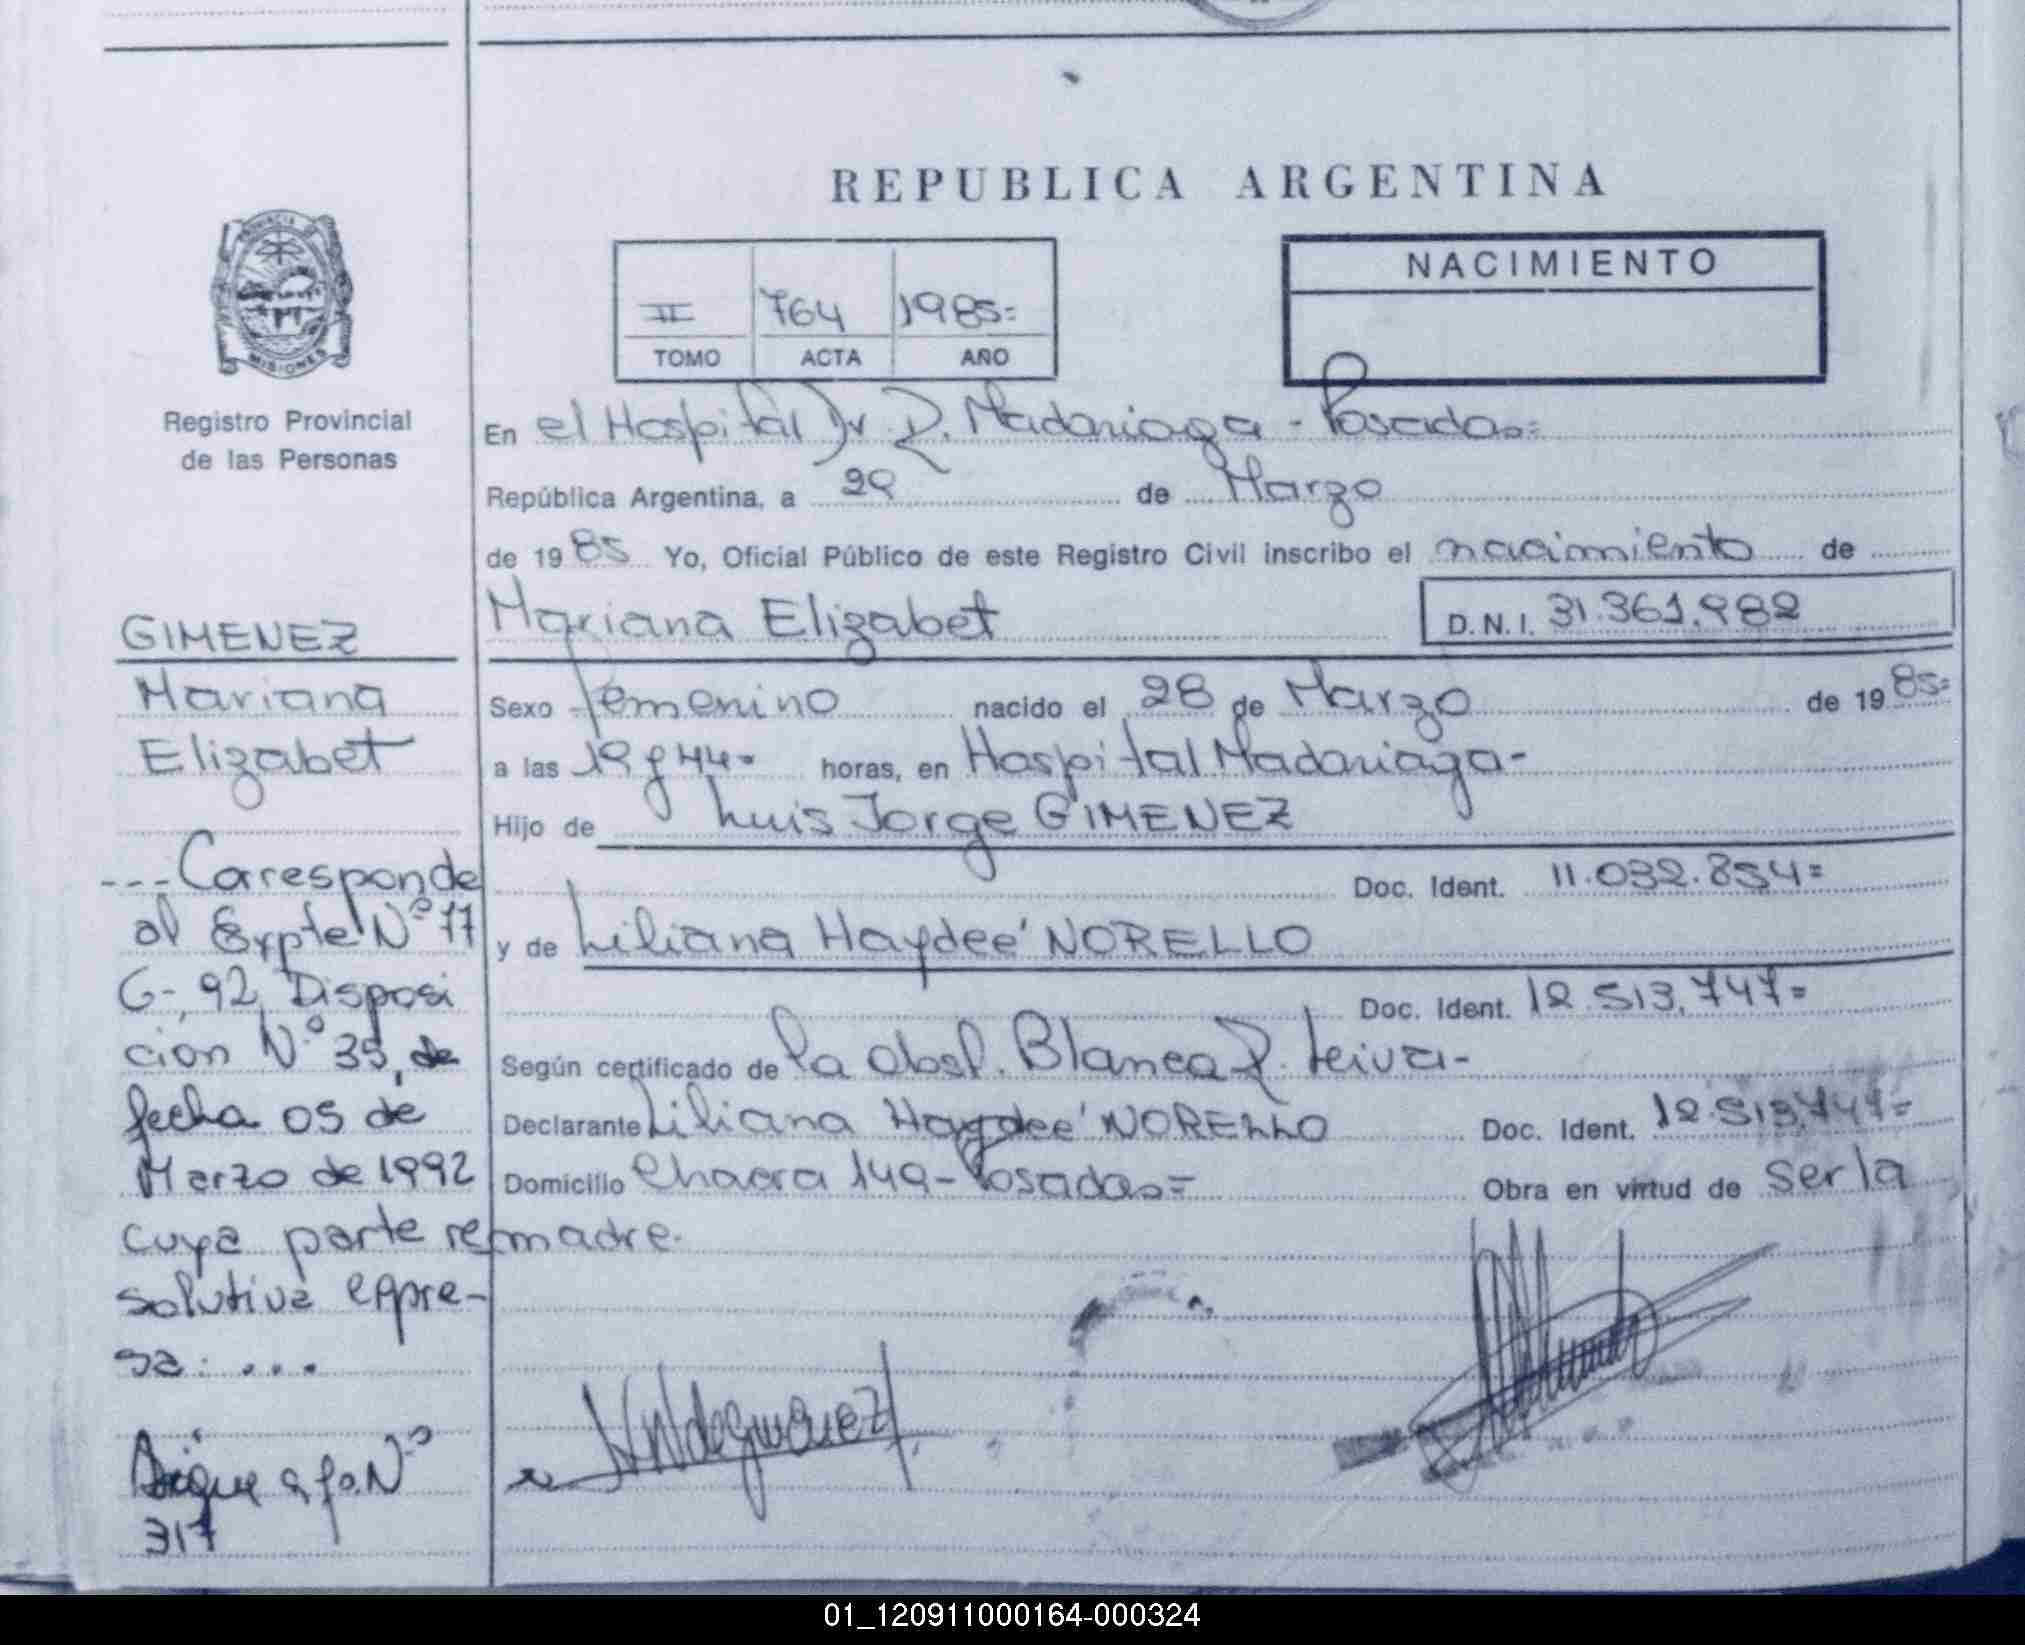 REPUBLICA ARGENTINA
PROVINCIA
MISIONES
Registro Provincial
de las Personas
II 764 1985=
TOMO ACTA AÑO
NACIMIENTO
En el Hospital Dr. R. Madariaga - Posadas=
República Argentina, a 29 de Marzo
de 1985 Yo, Oficial Público de este Registro Civil inscribo el nacimiento de
Mariana Elizabet D.N.I. 31.361.982
Sexo femenino nacido el 28 de Marzo de 1985=
a las 19 y 44= horas, en Hospital Madariaga-
Hijo de Luis Jorge GIMENEZ
Doc. Ident. 11.032.854=
y de Liliana Haydeé NORELLO
Doc. Ident. 12.513.747=
Según certificado de la obst. Blanca R. Leiva-
Declarante Liliana Haydeé NORELLO Doc. Ident. 12.513.747=
Domicilio Chacra 149-Posadas= Obra en virtud de ser la
madre.
GIMENEZ
Mariana
Elizabet
---Corresponde
al Expte Nº 77
G-, 92, Disposi
cion Nº 35, de
fecha 05 de
Marzo de 1992
cuya parte re
solutiva expre-
sa: ...
Sigue a fo. Nº
317
01_120911000164-000324